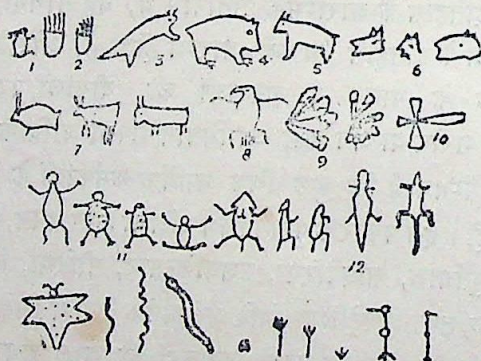 1 2 3 4 5 6
7 8 9 10
11 12